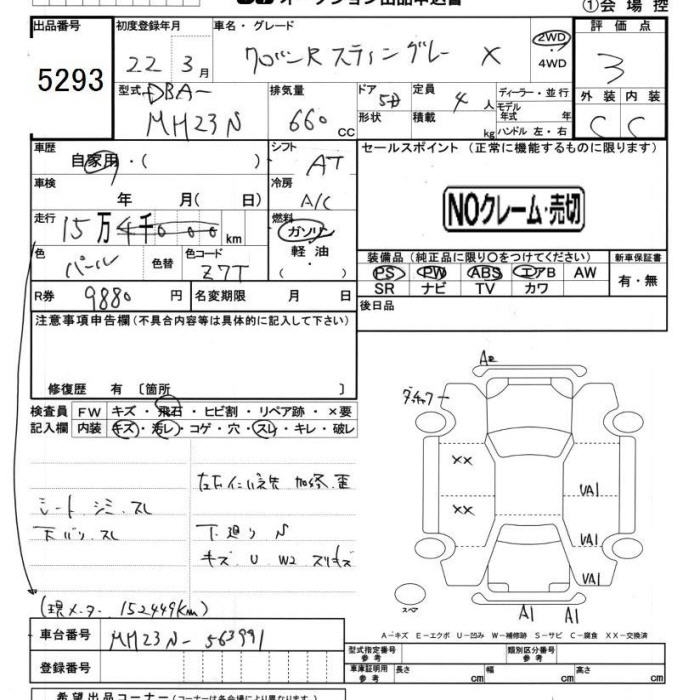 ①会場控
出品番号 初度登録年月 車名・グレード 評価点
5293 22年 3月 ワゴンR スティングレー X 2WD・4WD 3
型式 DBA- MH23N 排気量 660 cc ドア 5D 形状 定員 4人 積載 kg ディーラー・並行 モデル年式 年 ハンドル 左・右 外装 C 内装 C
車歴 自家用・( ) シフト AT セールスポイント (正常に機能するものに限ります)
車検 年 月(日) 冷房 A/C
NOクレーム・売切
走行 15万4千000km 燃料 ガソリン・軽油・( )
色 パール 色替 色コード Z7T 装備品(純正品に限り○をつけてください) 新車保証書
PS PW ABS エアB AW 有・無
SR ナビ TV カワ
R券 9880円 名変期限 月 日 後日品
注意事項申告欄(不具合内容等は具体的に記入して下さい)
修復歴 有 [箇所 ]
A2
検査員 FW キズ・飛石・ヒビ割・リペア跡・×要
記入欄 内装 キズ・汚レ・コゲ・穴・スレ・キレ・破レ
XX
XX UA1
シート シミ スレ
下廻り S
キズ U W2
UA1
UA1
(現メーター 152449km) スペア A1 A1
A-キズ E-エクボ U-凹み W-補修跡 S-サビ C-腐食 XX-交換済
車台番号 MH23N-563991 型式指定番号 参考 類別区分番号 参考
登録番号 車庫証明用 参考 長さ cm 幅 cm 高さ cm
希望出品コーナー(コーナーは各会場により異なります。)